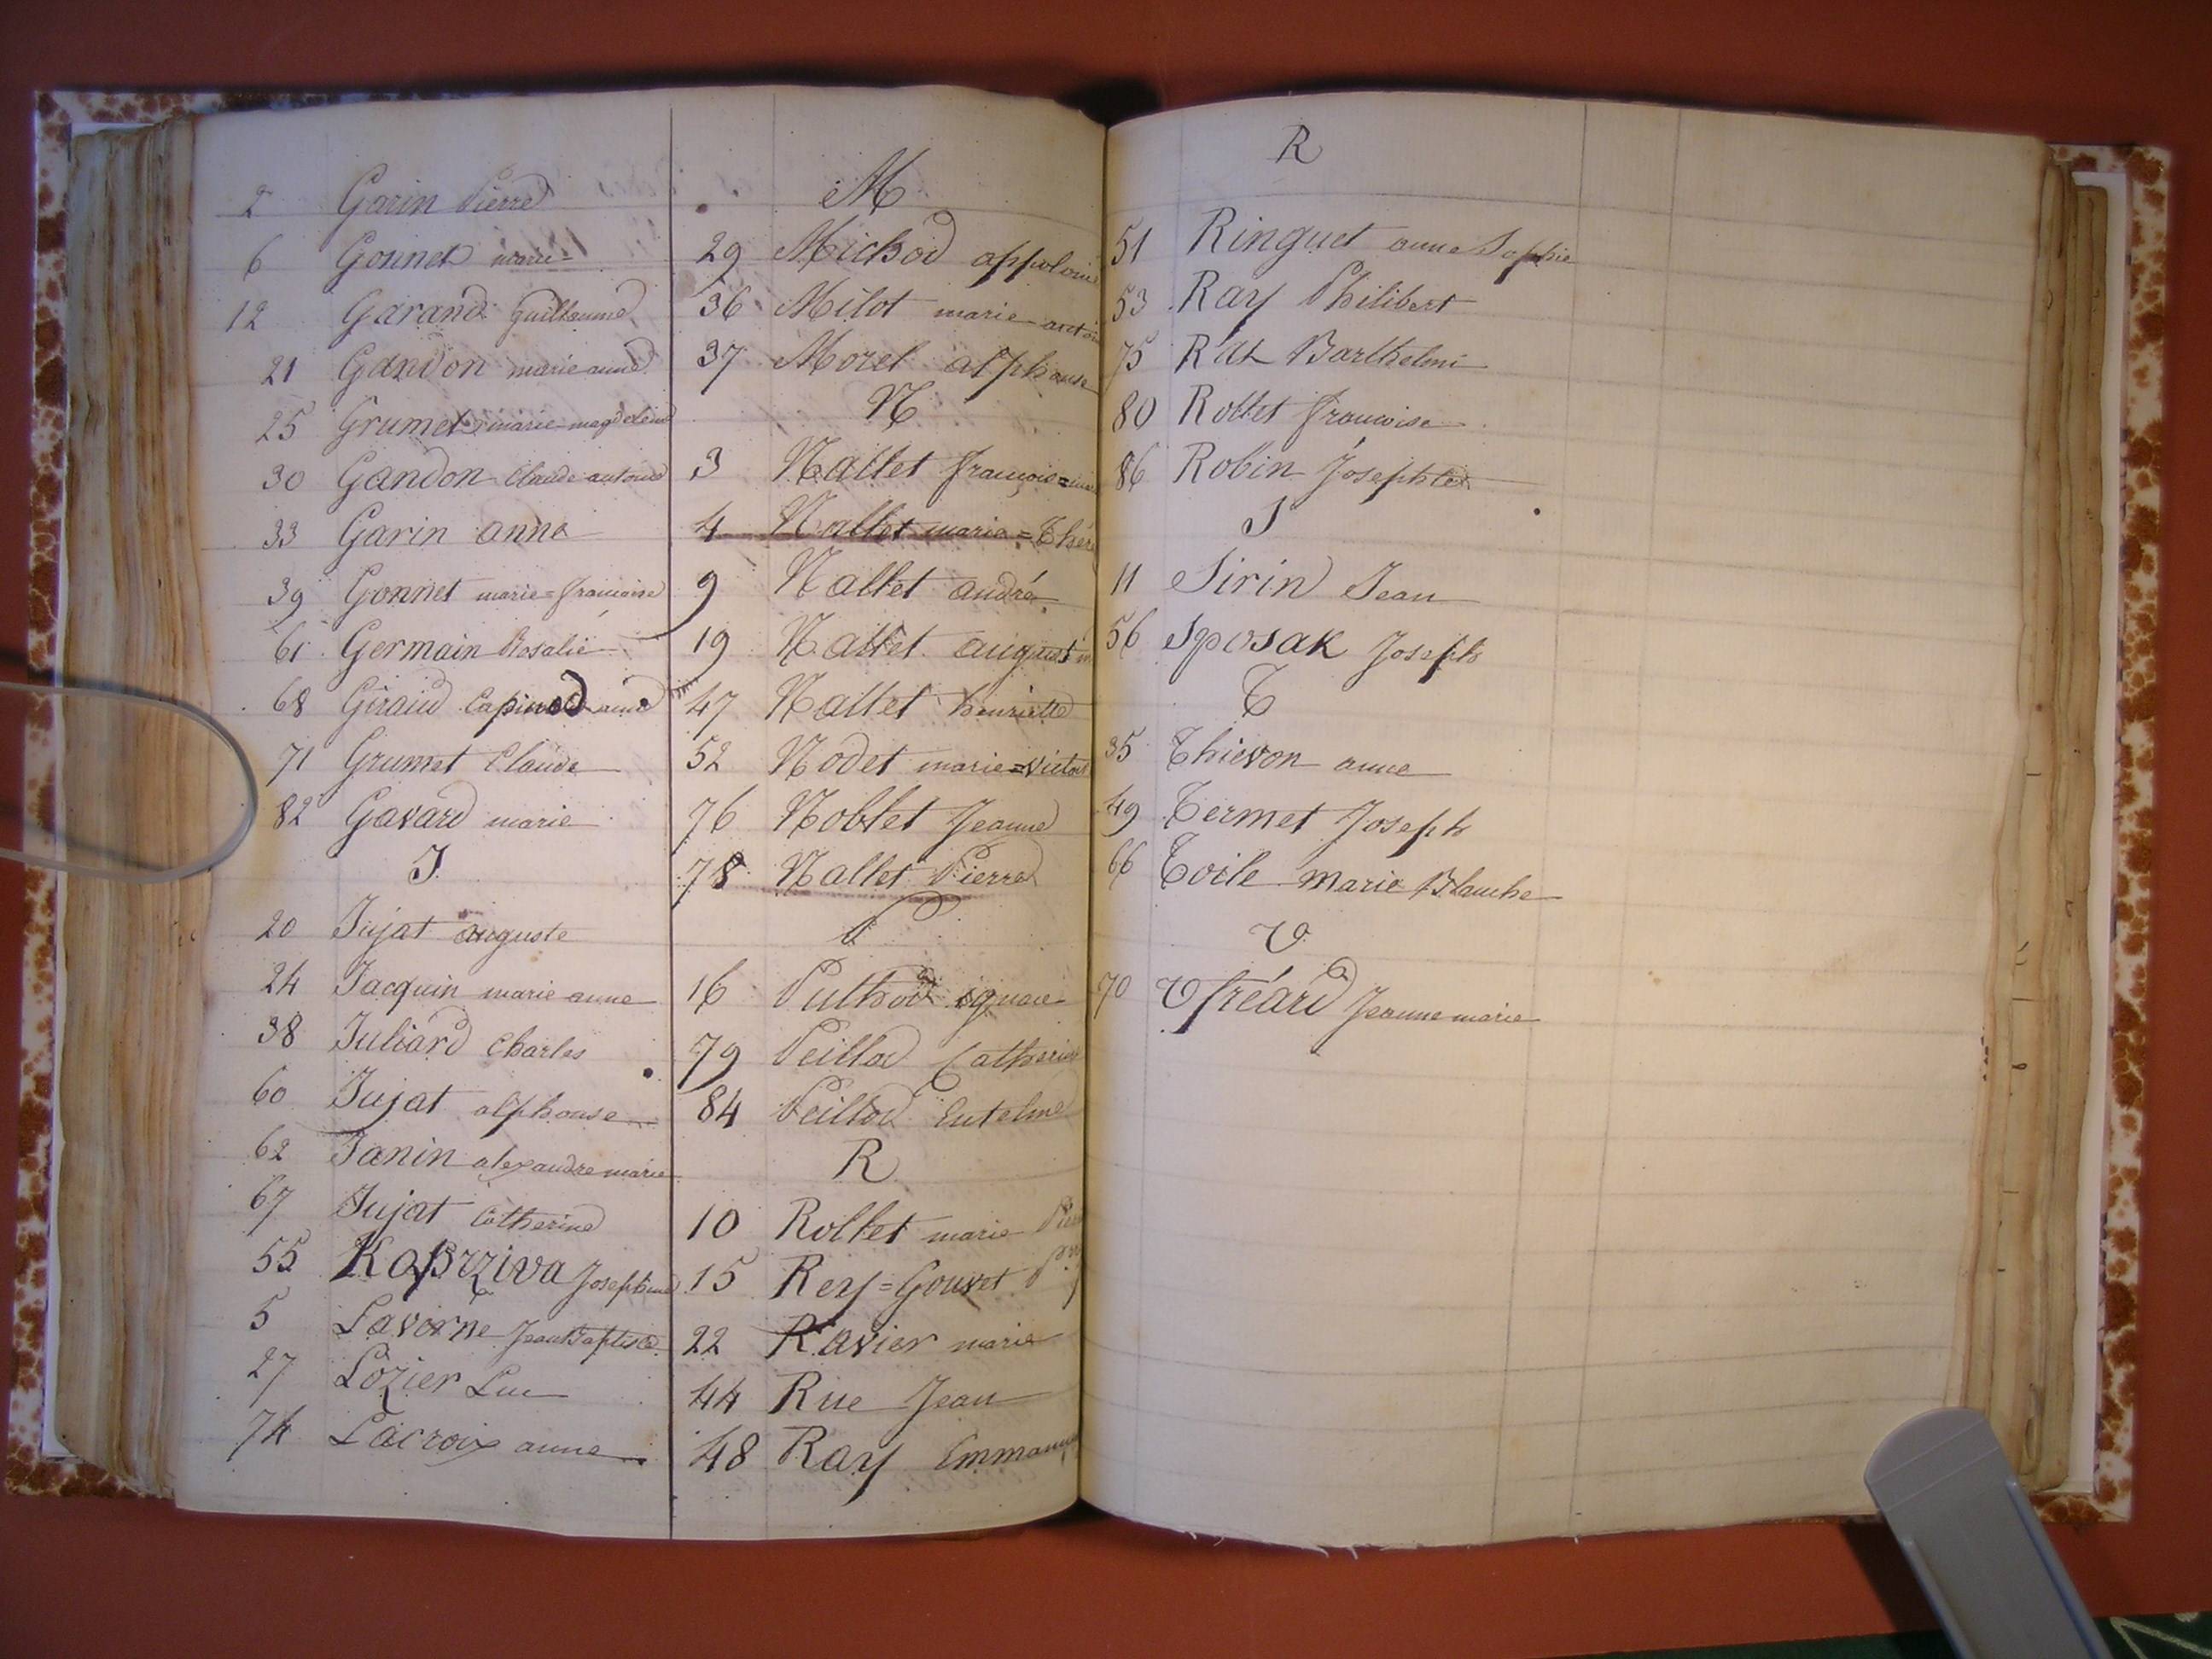 2 Garin Pierre
6 Gonnet marie=
12 Garand guillaume
21 Gandon marie anne
25 Grumet marie magdeleine
30 Gandon Claude antoine
33 Garin anne
39 Gonnet marie=francoise
61 Germain Rosalie
68 Giraud
71 Grumet Claude
82 Gavard marie
J
20 Jujat auguste
24 Jacquin marie anne
38 Juliard Charles
60 Jujat alphonse
62 Janin alexandre marie
67 Jujat Catherine
55 Josephine
5 Laverne Jean Baptiste
27 Lozier Luc
74 Lacroix anne
M
29 Michod appolonie
36 Milot marie
37 Morel alphonse
N
3 Nallet françoise=
4 Nallet marie=Thér
9 Nallet andré
19 Nallet august
47 Nallet henriette
52 Nodet marie=victoi
76 Noblet Jeanne
78 Nallet Pierre
P
16 Puthod ignace
79 Peillod Catherine
84 Peillod Entelme
R
10 Rollet marie
15 Rey=Gouvet
22 Ravier marie
44 Rue Jean
48 Ray Emmanu
R
51 Ringuet anne Sophie
53 Ray Philibert
75 Rat Barthelmi
80 Rollet francoise
86 Robin Josephte
S
11 Sirin Jean
56 Sposak Joseph
T
35 Thievon anne
49 Termet Joseph
66 Toile marie Blanche
V
70 Vfréard Jeanne marie